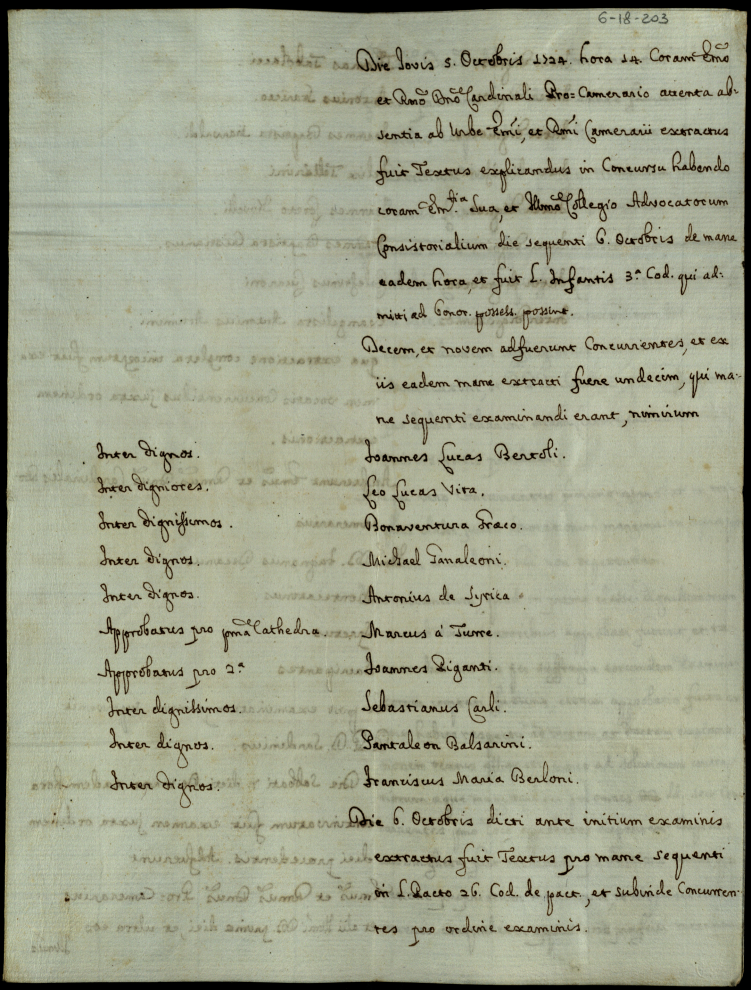 6-18-203
Die Iovis 5. Octobris 1724. hora 14. Coram Emo
et Rmo Dno Cardinali Pro=Camerario attenta ab-
sentia ab Urbe Emi, et Rmi Camerarii extractus
fuit Textus explicandus in Concursu habendo
coram Em.tia Sua, et Illmo Collegio Advocatorum
Consistorialium die sequenti 6. Octobris de mane
eadem hora, et fuit L. Infantis 3.a Cod. qui ad:
mitti ad bonor. possess. possint.
Decem, et novem adfuerunt Concurrentes, et ex
iis eadem mane extracti fuere undecim, qui ma:
ne sequenti examinandi erant, nimirum
Inter dignos. Ioannes Lucas Bertoli.
Inter digniores. Leo Lucas Vita.
Inter dignissimos. Bonaventura Graeco.
Inter dignos. Michael Panaleoni.
Inter dignos. Antonius de Syrica.
Approbatus pro pma Cathedra. Marcus à Turre.
Approbatus pro 2.a Ioannes Piganti.
Inter dignissimos. Sebastianus Carli.
Inter dignos. Pantaleon Balsarini.
Inter dignos. Franciscus Maria Berloni.
Die 6. Octobris dicti ante initium examinis
extractus fuit Textus pro mane sequenti
in L. Pacto 26. Cod. de pact., et subinde Concurren-
tes pro ordine examinis.